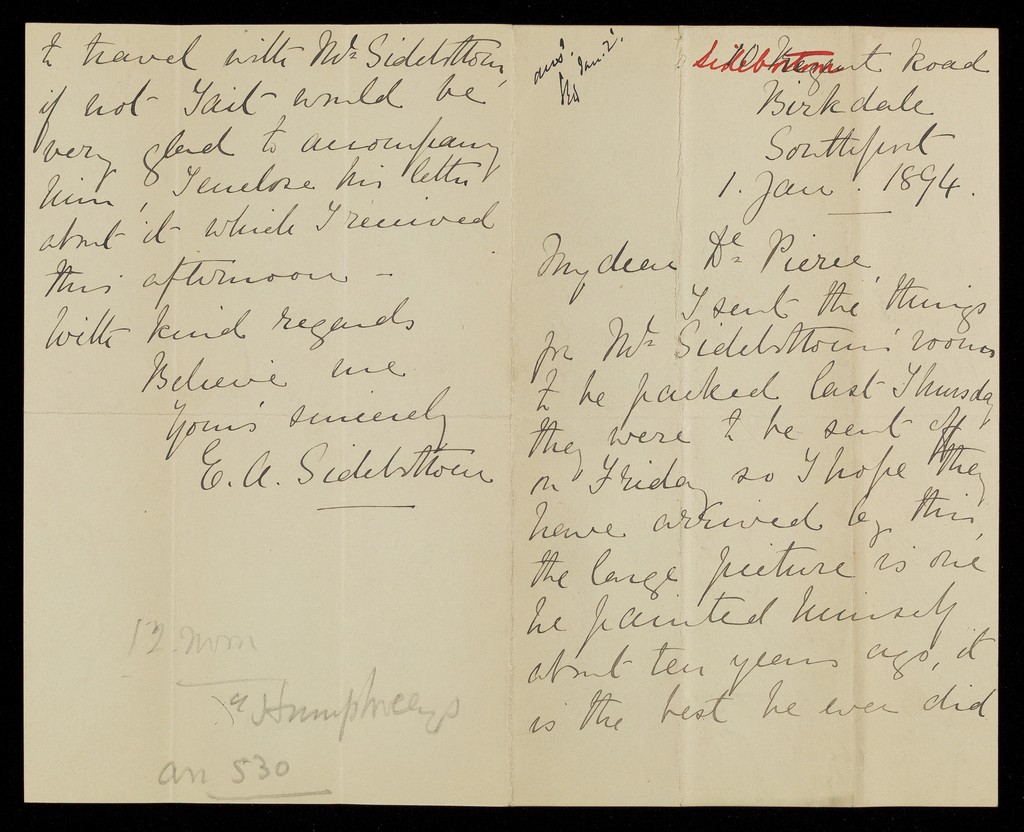 ansd.
Jan. 2d.
Sidebottom
Regent Road
Birkdale
Southport
1. Jan. 1894.
My dear Dr. Pierce,
I sent the things
for Mr Sidebottom's rooms
to be packed last Thursday,
they were to be sent off
on Friday so I hope they
have arrived by this,
the large picture is one
he painted himself
about ten years ago, it
is the best he ever did
to travel with Mr. Sidebottom,
if not Tait would be
very glad to accompany
him, I enclose his letter
about it which I received
this afternoon -
With kind regards
Believe me
Yours sincerely
E. A. Sidebottom
12
Humphreys
an 530